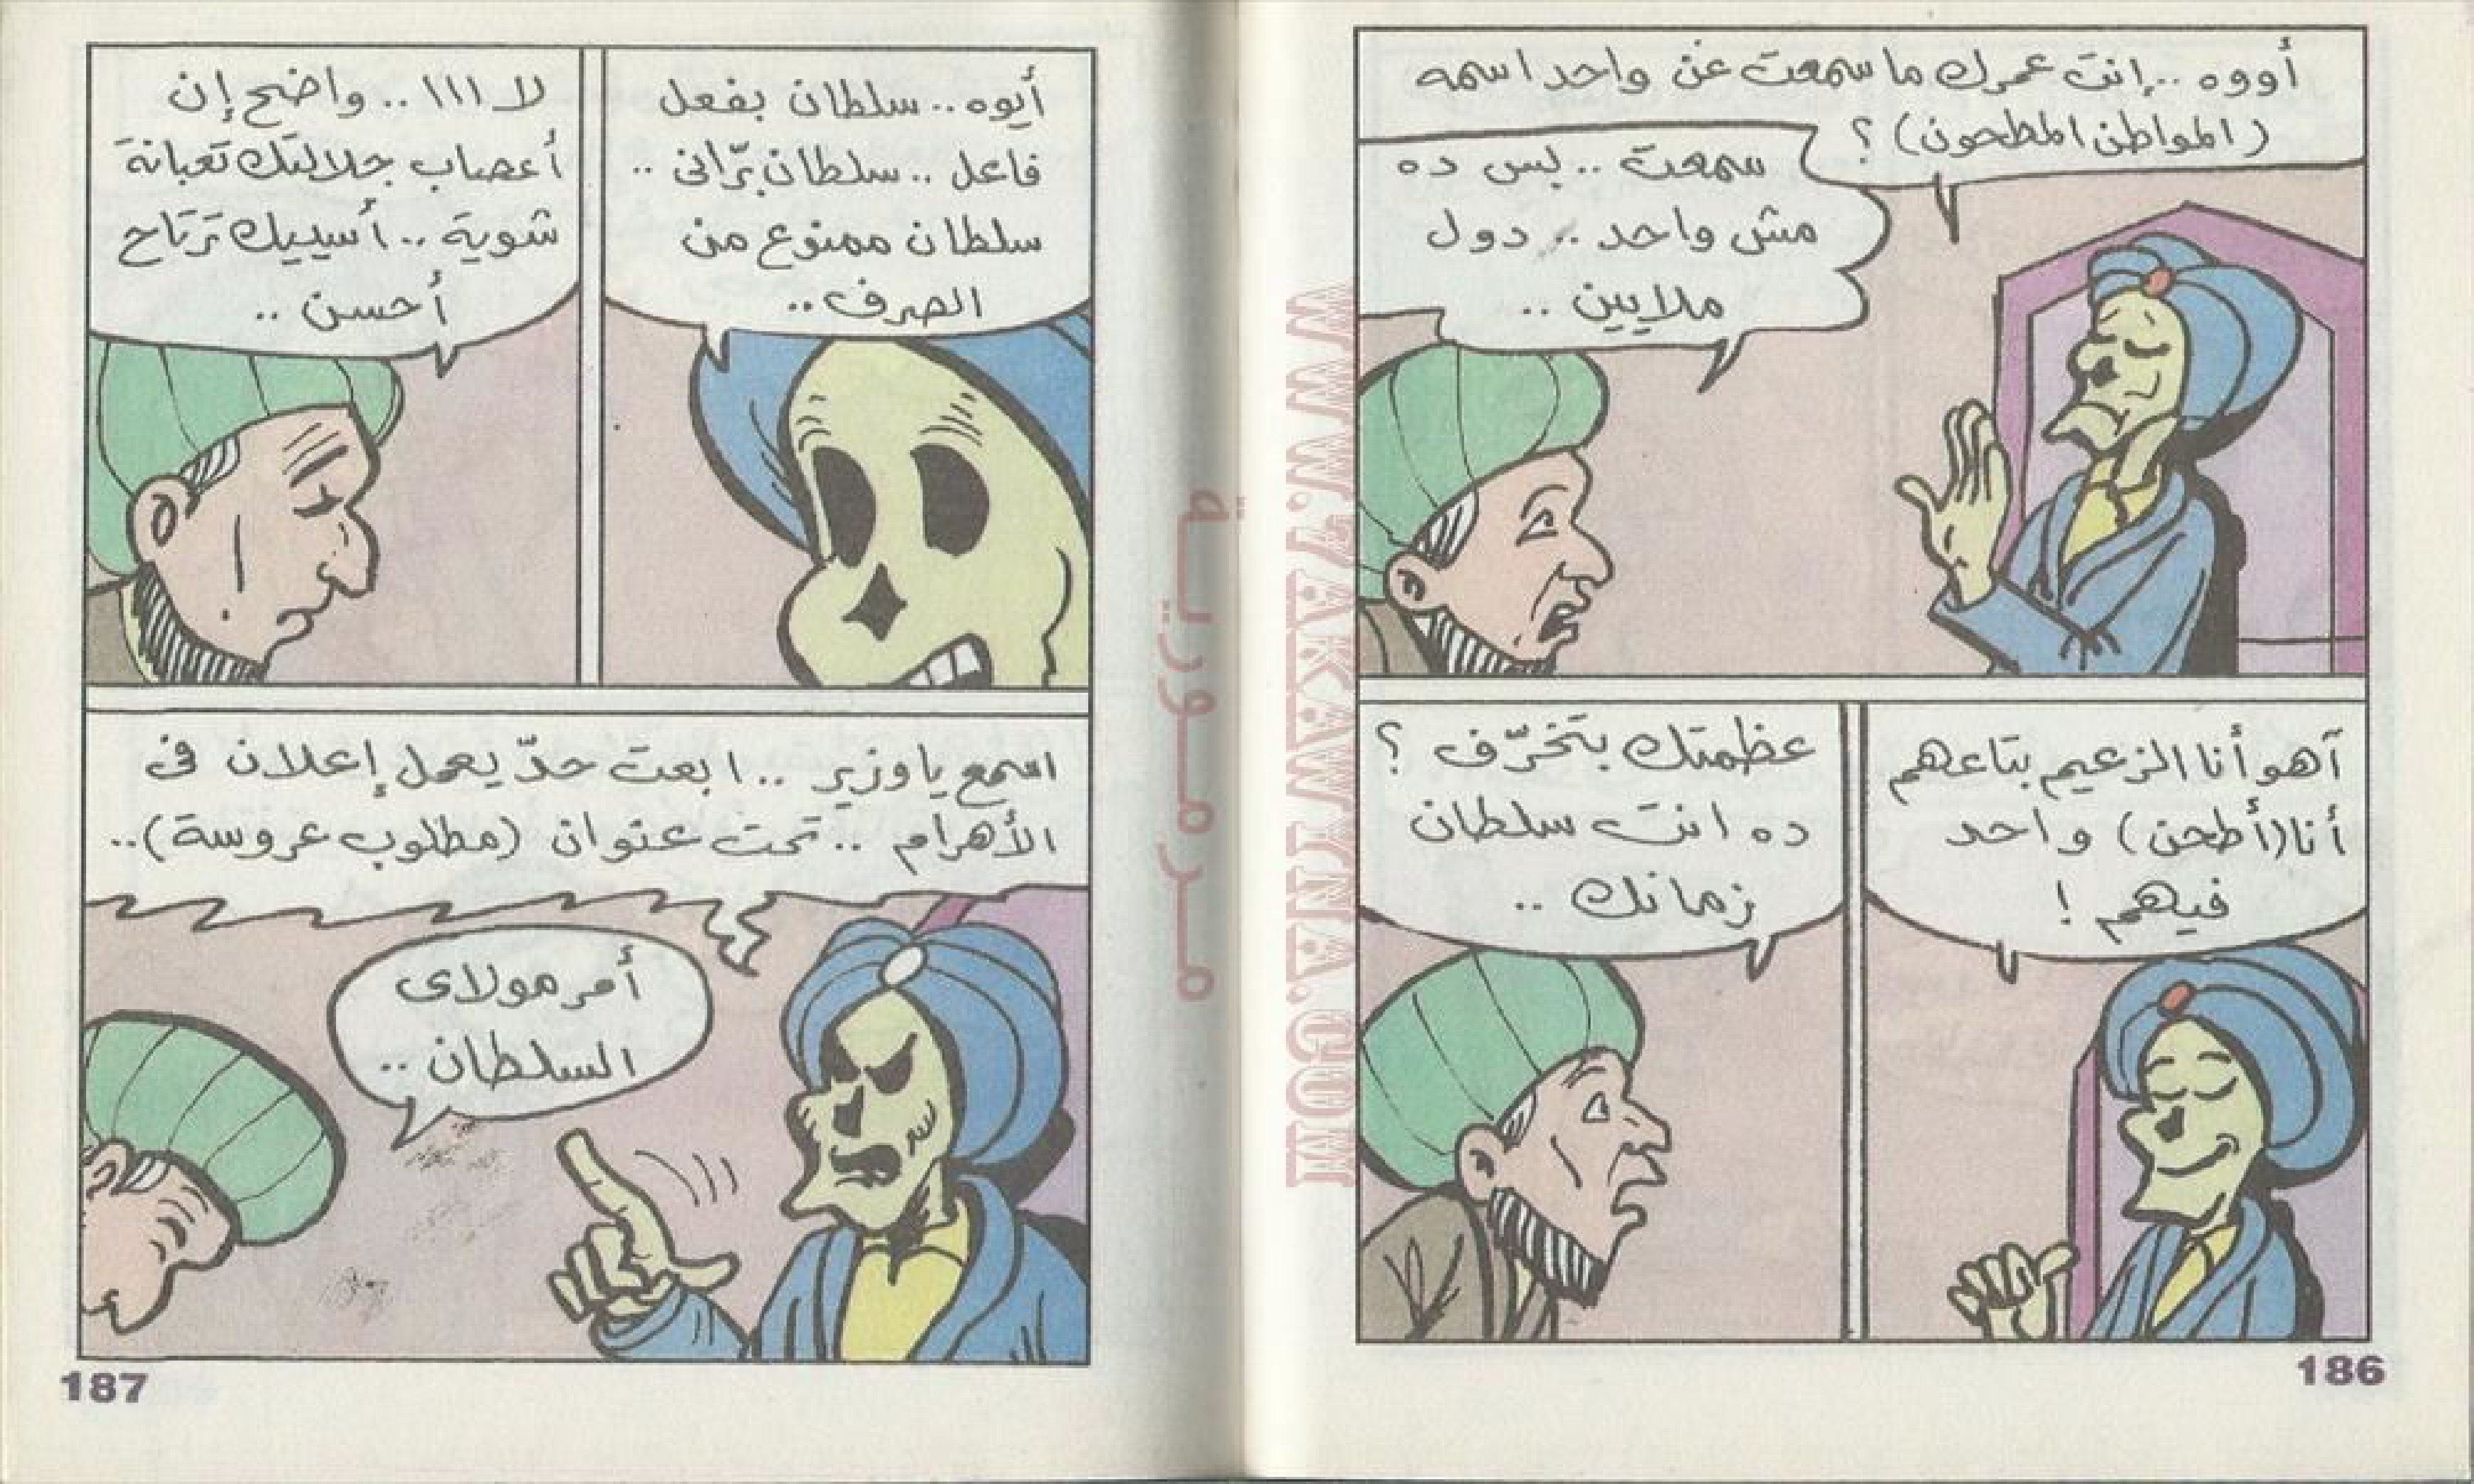 أووه .. إنت عمرك ما سمعت عن واحد اسمه
(المواطن المطحون) ؟
سمعت .. بس ده
مش واحد .. دول
ملايين ..
آهو أنا الزعيم بتاعهم
أنا (أطحن) واحد
فيهم !
عظمتك بتخرّف ؟
ده انت سلطان
زمانك ..
186
أيوه .. سلطان بفعل
فاعل .. سلطان برّانى ..
سلطان ممنوع من
الصرف ..
لا ااا .. واضح إن
أعصاب جلالتك تعبانة
شوية .. أسيبك ترتاح
أحسن ..
اسمع يا وزير .. ابعت حدّ يعمل إعلان فى
الأهرام .. تحت عنوان (مطلوب عروسة) ..
أمر مولاى
السلطان ..
187
مرمورية
WWW.7AKAWINA.COM